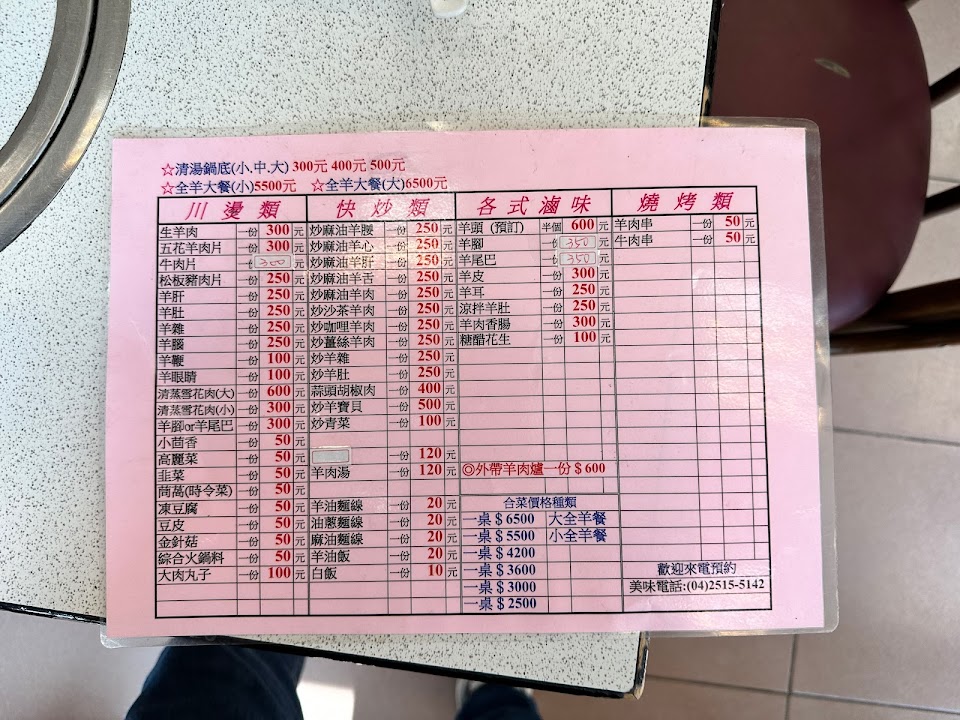 ☆清湯鍋底(小.中.大) 300元 400元 500元
☆全羊大餐(小)5500元 ☆全羊大餐(大)6500元
川燙類
生羊肉 一份 300 元
五花羊肉片 一份 300 元
牛肉片 350 元
松板豬肉片 一份 250 元
羊肝 一份 250 元
羊肚 一份 250 元
羊雜 一份 250 元
羊腦 一份 250 元
羊鞭 一份 100 元
羊眼睛 一份 100 元
清蒸雪花肉(大) 一份 600 元
清蒸雪花肉(小) 一份 300 元
羊腳or羊尾巴 一份 300 元
小茴香 一份 50 元
高麗菜 一份 50 元
韭菜 一份 50 元
茼萵(時令菜) 一份 50 元
凍豆腐 一份 50 元
豆皮 一份 50 元
金針菇 一份 50 元
綜合火鍋料 一份 50 元
大肉丸子 一份 100 元
快炒類
炒麻油羊腰 一份 250 元
炒麻油羊心 一份 250 元
炒麻油羊肝 一份 250 元
炒麻油羊舌 一份 250 元
炒麻油羊肉 一份 250 元
炒沙茶羊肉 一份 250 元
炒咖哩羊肉 一份 250 元
炒薑絲羊肉 一份 250 元
炒羊雜 一份 250 元
炒羊肚 一份 250 元
蒜頭胡椒肉 一份 400 元
炒羊寶貝 一份 500 元
炒青菜 一份 100 元
一份 120 元
羊肉湯 一份 120 元
羊油麵線 一份 20 元
油蔥麵線 一份 20 元
麻油麵線 一份 20 元
羊油飯 一份 20 元
白飯 一份 10 元
各式滷味
羊頭 (預訂) 半個 600 元
羊腳 一份 350 元
羊尾巴 一份 350 元
羊皮 一份 300 元
羊耳 一份 250 元
涼拌羊肚 一份 250 元
羊肉香腸 一份 300 元
糖醋花生 一份 100 元
◎外帶羊肉爐一份＄600
合菜價格種類
一桌＄6500 大全羊餐
一桌＄5500 小全羊餐
一桌＄4200
一桌＄3600
一桌＄3000
一桌＄2500
燒烤類
羊肉串 一份 50 元
牛肉串 一份 50 元
歡迎來電預約
美味電話:(04)2515-5142